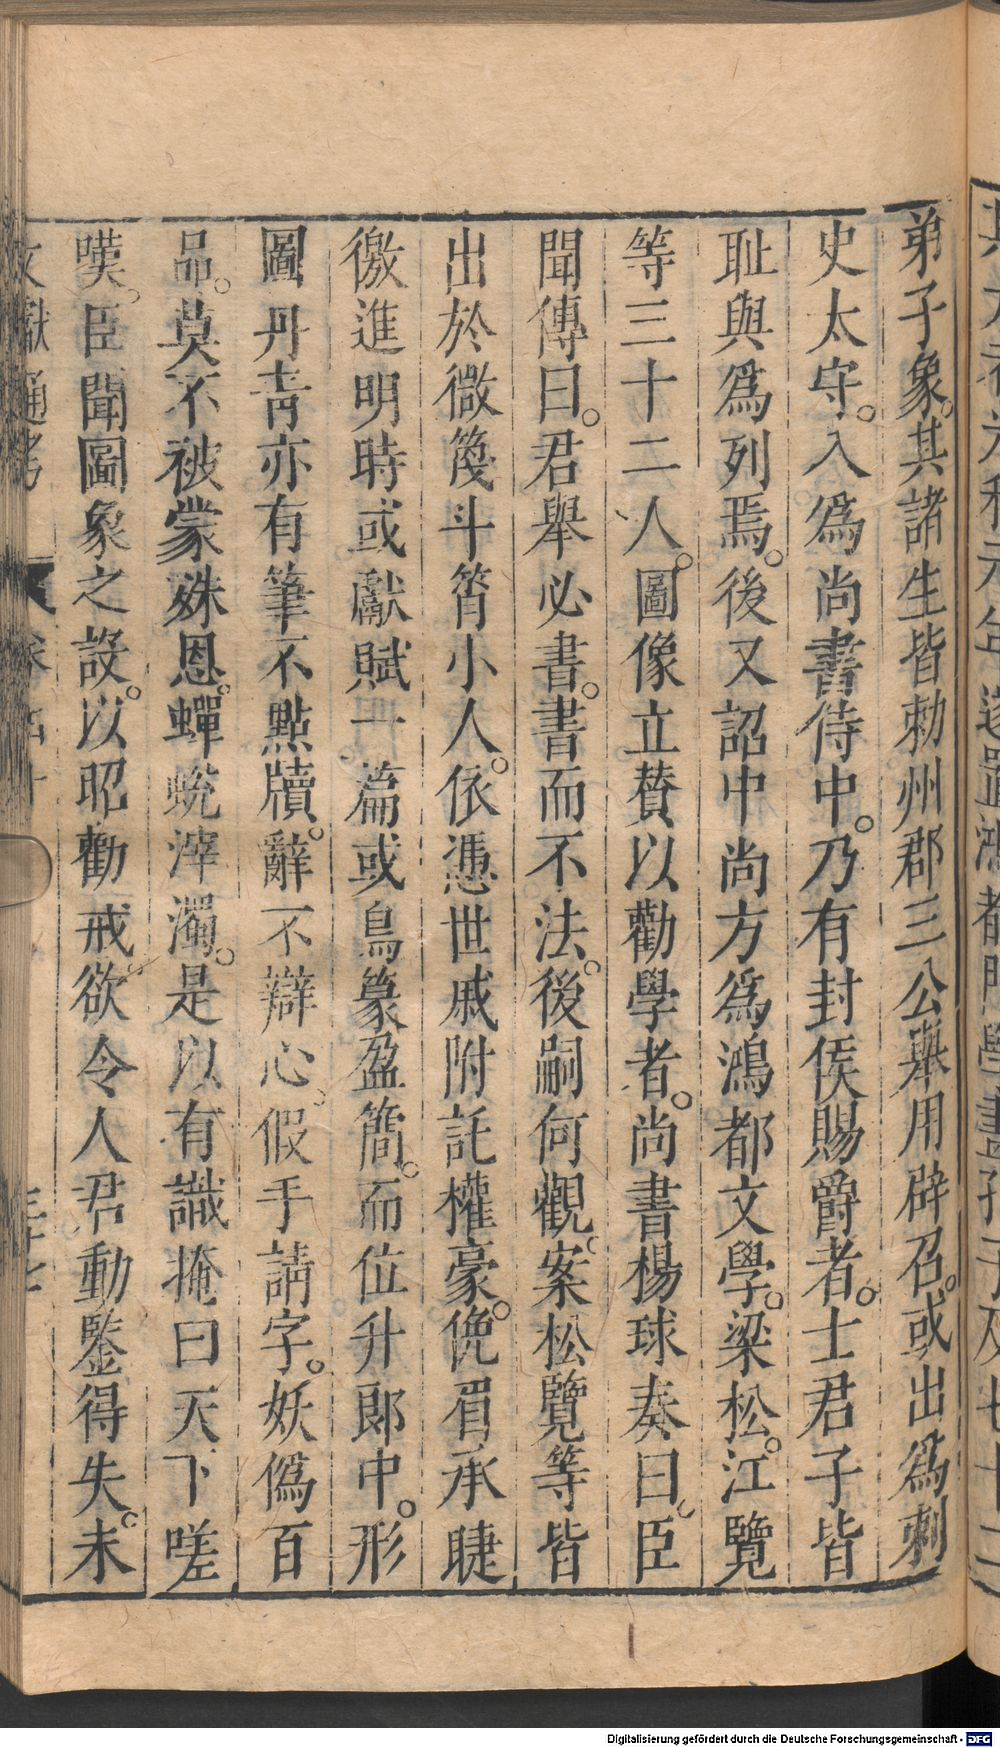 弟子象。其諸生皆勅州郡三公舉用辟召。或出爲刺
史太守。入爲尚書侍中。乃有封侯賜爵者。士君子皆
耻與爲列焉。後又詔中尚方爲鴻都文學。梁松。江覽
等三十二人。圖像立賛以勸學者。尚書楊球奏曰。臣
聞傳曰。君舉必書。書而不法。後嗣何觀。案松覽等皆
出於微篾斗筲小人。依憑世戚附託權豪。俛眉承睫
徼進明時或獻賦一篇或鳥篆盈簡。而位升郎中。形
圖丹靑亦有筆不點牘。辭不辯心。假手請字。妖僞百
品。莫不被蒙殊恩。蟬蛻滓濁。是以有識掩口天下嗟
嘆。臣聞圖象之設。以昭勸戒。欲令人君動鍳得失。未
文獻通考
Digitalisierung gefördert durch die Deutsche Forschungsgemeinschaft - DFG